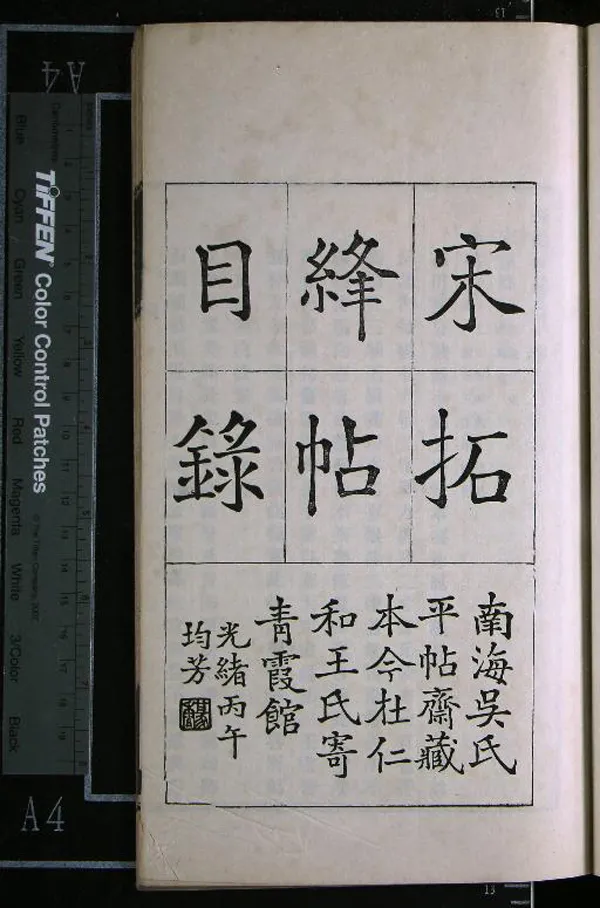 宋拓
絳帖
目錄
南海吳氏
平帖齋藏
本今在仁
和王氏寄
青霞館
光緒丙午
均芳
TIFFEN Color Control Patches
© The Tiffen Company, 2007
Centimetres
Blue
Cyan
Green
Yellow
Red
Magenta
White
3/Color
Black
A4
A4
13